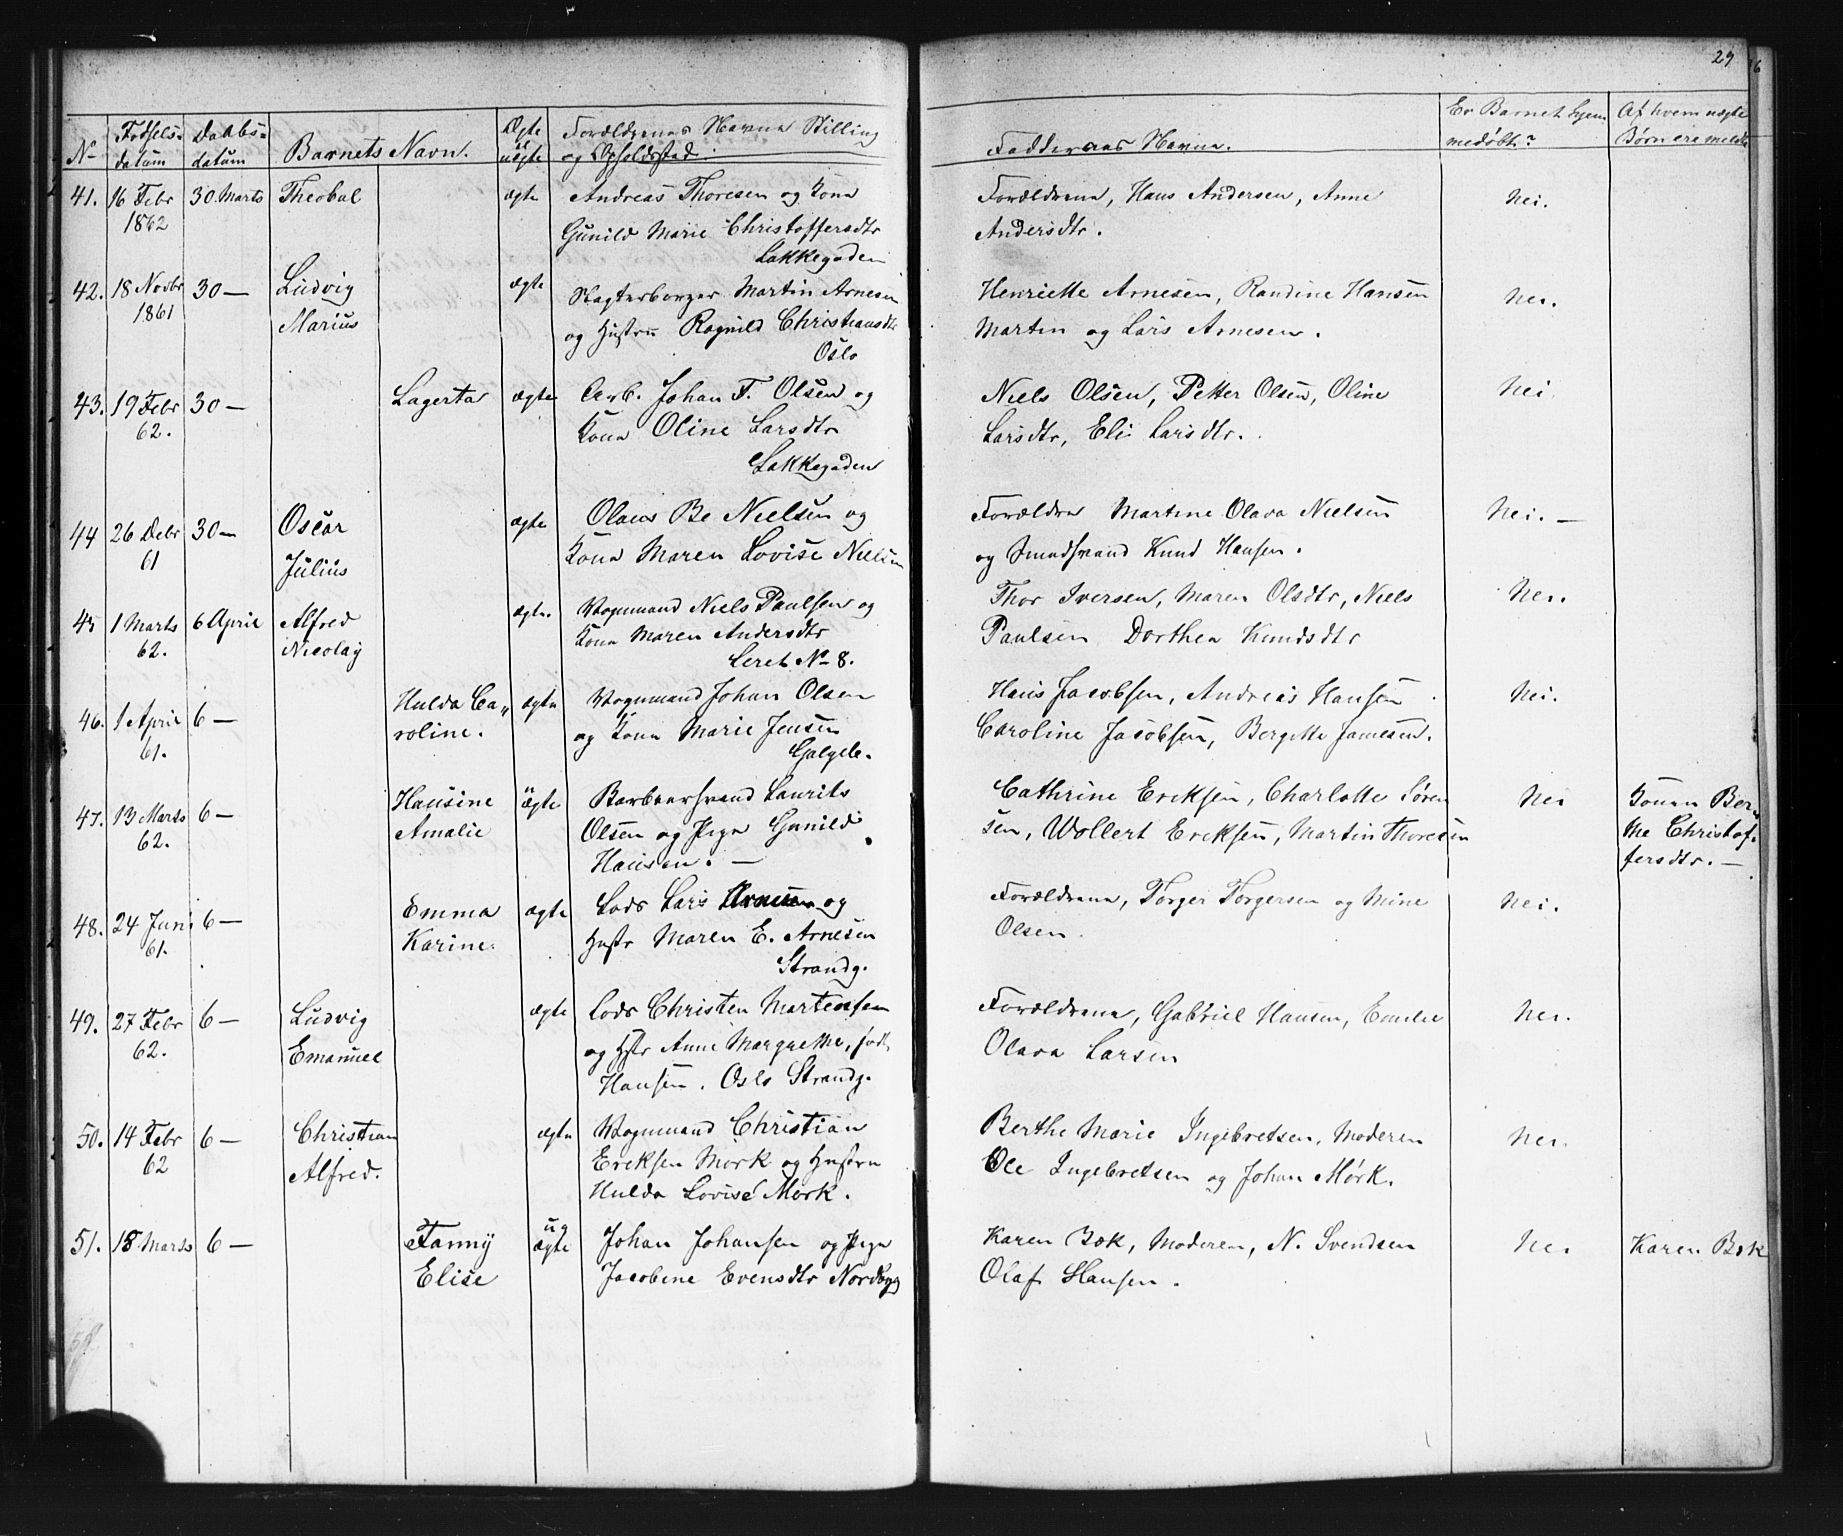 29
No
Fødsels-
datum
Daabs-
datum
Barnets Navn.
Ægte
el
uægte
Forældrenes Navne Stilling
og Opholdssted.
Faddernes Navne.
Er Barnet hjem
medøbt?
Af hvem uægte
Børn ere meldte
41. 16 Febr 30 Marts Theobal ægte Andreas Thoresen og Kone Forældrene, Hans Andersen, Anne Nei.
1862 Gunild Marie Christoffersdtr Andersdtr.
Lakkegaden
42. 18 Novbr 30 — Ludvig ægte Slagterborger Martin Arnesen Henriette Arnesen, Randine Hansen Nei.
1861 Marius og Hustru Ragnild Christiansdtr Martin og Lars Arnesen.
Oslo
43. 19 Febr 30 — Lagerta ægte Arb. Johan F. Olsen og Niels Olsen, Petter Olsen, Oline Nei
62. Kone Oline Larsdtr Larsdtr, Eli Larsdtr.
Lakkegaden
44 26 Debr 30 — Oscar ægte Olaus Be Nielsen og Forældre Martine Olava Nielsen Nei. —
61 Julius Kone Maren Lovise Nielsen og Smedsvend Knud Hansen.
45 1 Marts 6 April Alfred ægte. Vognmand Niels Paulsen og Thor Iversen, Maren Olsdtr, Niels Nei.
62. Nicolay Kone Maren Andersdtr Paulsen Dorthea Knudsdtr
Leret No 8.
46. 1 April 6 — Hulda Ca„ ægte Vognmand Johan Olsen Hans Jacobsen, Andreas Hansen Nei.
61. roline. og Kone Marie Jensen Caroline Jacobsen, Bergitte Jamesen.
Galgeb.
47. 13 Marts 6 — Hansine uægte Barbeersvend Laurits Cathrine Eriksen, Charlotte Søren Nei Konen Ber„
62. Amalie Olsen og Pige Gunild sen, Wollert Eriksen, Martin Thoresen the Christof-
Hansen. — fersdtr. —
48. 24 Juni 6 — Emma ægte Lods Lars Arnesen og Forældrene, Torger Torgersen og Mine Nei.
61. Karine. Hustr Maren E. Arnesen Olsen
Strandg.
49. 27 Febr 6 — Ludvig ægte Lods Christen Martensen Forældrene, Gabriel Hansen, Emelie Nei.
62. Emanuel og Hstr Anne Margrethe, født Olava Larsen
Hansen. Oslo Strandg.
50. 14 Febr 6 — Christian ægte Vognmand Christian Berthe Marie Ingebretsen, Moderen Nei.
62 Alfred. Eriksen Mørk og Hustru Ole Ingebretsen og Johan Mørk.
Hulda Lovise Mørk.
51. 18 Marts 6 — Fanny uægte Johan Johansen og Pige Karen Bok, Moderen, N. Svendsen Nei Karen Bok
Elise Jacobine Evensdtr Nordbyg Olaf Hansen.